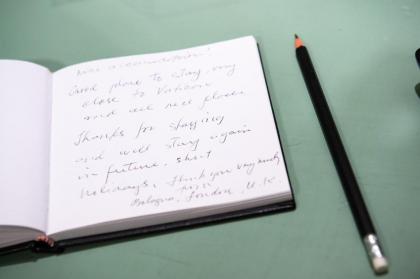 Nice accommodation!
Good place to stay, very
close to Vatican
and all nice places
Thanks for staying
and will stay again
in future, short
holidays. Thank you very much
London, U.K